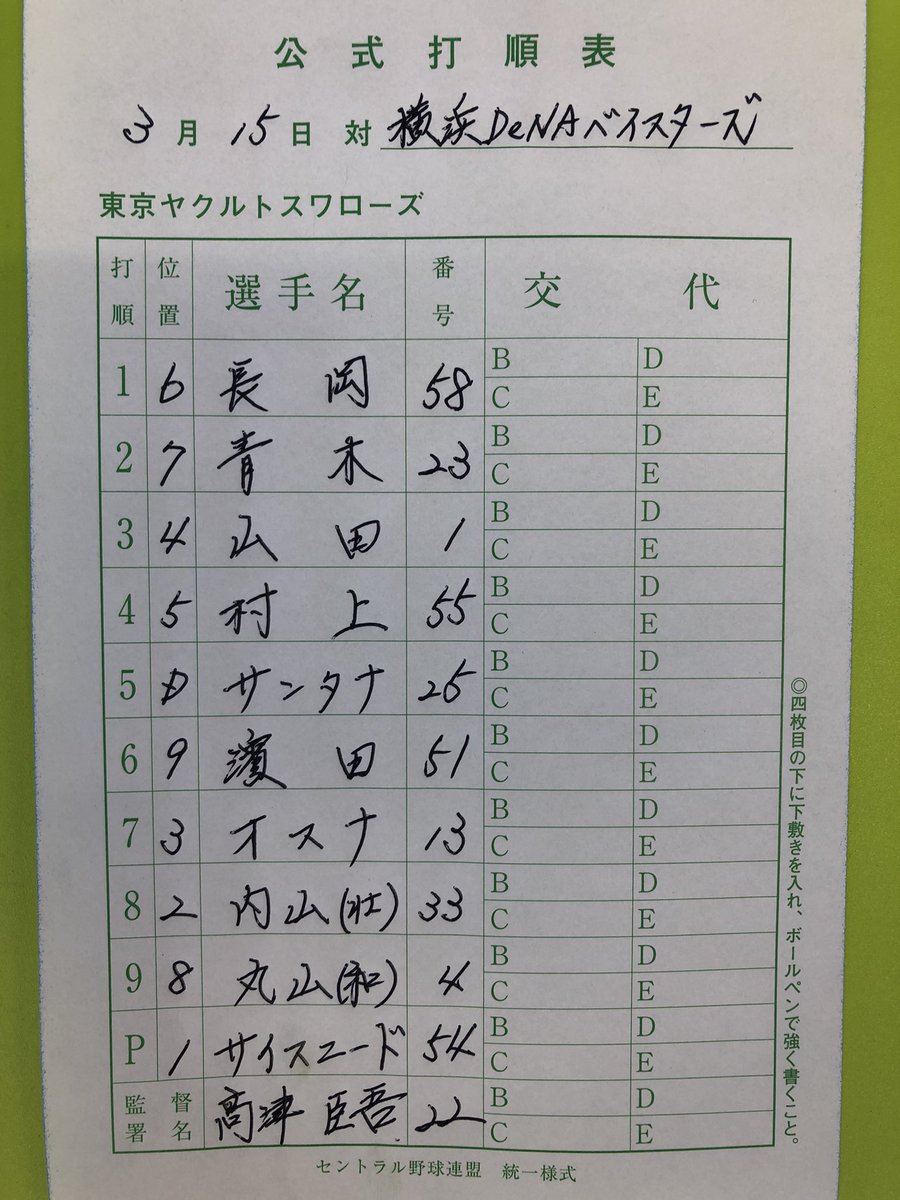 公式打順表
3月15日 対 横浜DeNAベイスターズ
東京ヤクルトスワローズ
打順 位置 選手名 番号 交代
1 6 長岡 58 B D C E
2 7 青木 23 B D C E
3 4 山田 1 B D C E
4 5 村上 55 B D C E
5 D サンタナ 25 B D C E
6 9 濱田 51 B D C E
7 3 オスナ 13 B D C E
8 2 内山(壮) 33 B D C E
9 8 丸山(和) 4 B D C E
P 1 サイスニード 54 B D C E
監督署名 高津臣吾 22 B D C E
◎四枚目の下に下敷きを入れ、ボールペンで強く書くこと。
セントラル野球連盟 統一様式